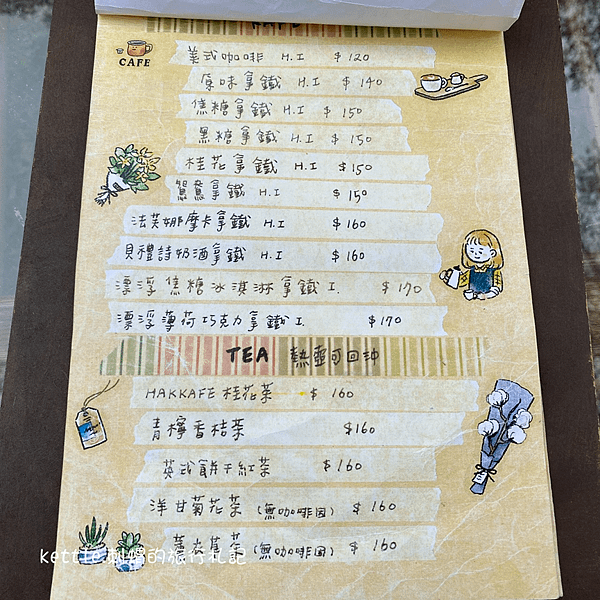 CAFE
美式咖啡 H.I $120
原味拿鐵 H.I $140
焦糖拿鐵 H.I $150
黑糖拿鐵 H.I $150
桂花拿鐵 H.I $150
鴛鴦拿鐵 H.I $150
法芙娜摩卡拿鐵 H.I $160
貝禮詩奶酒拿鐵 H.I $160
漂浮焦糖冰淇淋拿鐵 I. $170
漂浮薄荷巧克力拿鐵 I. $170
TEA 熱壺可回沖
HAKKAFE 桂花茶 $160
青檸香桔茶 $160
英式餅干紅茶 $160
洋甘菊花茶 (無咖啡因) $160
(無咖啡因) $160
kettle 的旅行札記